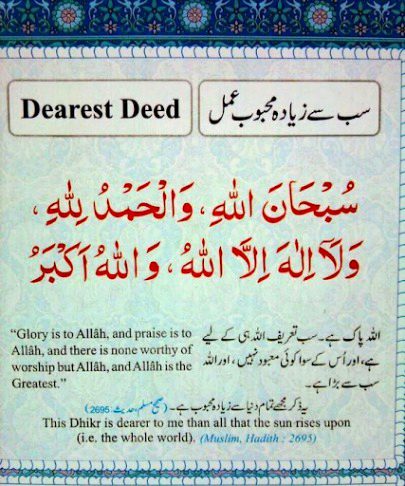 Dearest Deed
سب سے زیادہ محبوب عمل
سُبْحَانَ اللهِ، وَالْحَمْدُ لِلّٰهِ،
وَلَآ اِلٰهَ اِلَّا اللهُ، وَاللهُ اَكْبَرُ
“Glory is to Allâh, and praise is to
Allâh, and there is none worthy of
worship but Allâh, and Allâh is the
Greatest.”
اللہ پاک ہے۔ سب تعریف اللہ ہی کے لیے
ہے، اور اُس کے سوا کوئی معبود نہیں، اور اللہ
سب سے بڑا ہے۔
یہ ذکر مجھے تمام دنیا سے زیادہ محبوب ہے۔ (صحیح مسلم، حدیث: 2695)
This Dhikr is dearer to me than all that the sun rises upon
(i.e. the whole world). (Muslim, Hadith : 2695)